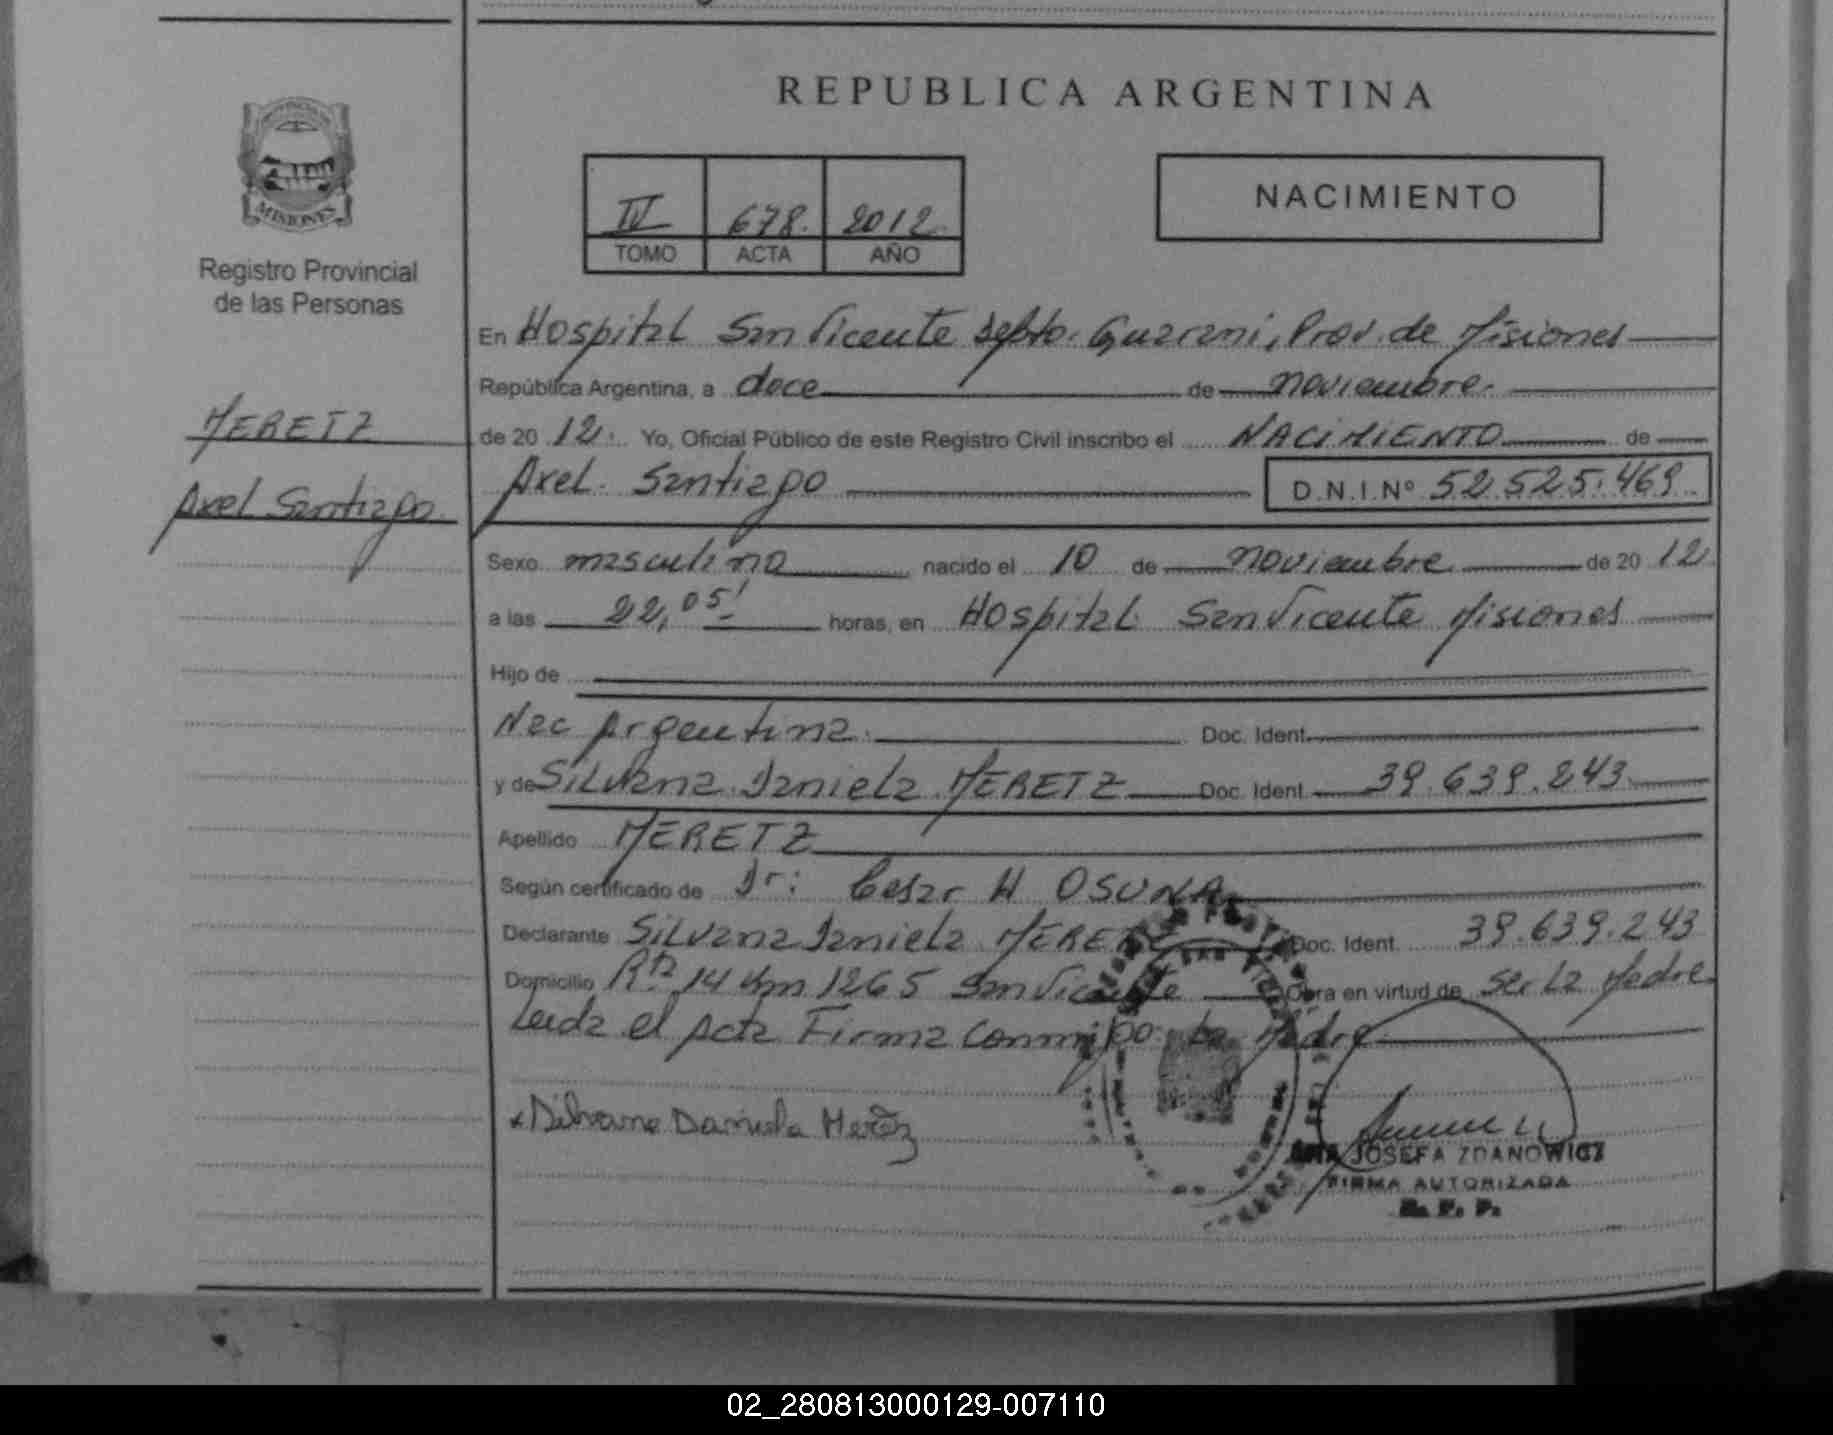 REPUBLICA ARGENTINA
MISIONES
Registro Provincial
de las Personas
IV 678. 2012.
TOMO ACTA AÑO
NACIMIENTO
MERETZ
Axel Santiago
En Hospital San Vicente Depto. Guarani, Prov. de Misiones
República Argentina, a doce de noviembre.
de 20 12. Yo, Oficial Público de este Registro Civil inscribo el NACIMIENTO de
Axel. Santiago D.N.I.Nº 52.525.469
Sexo masculino nacido el 10 de noviembre de 20 12
a las 22,05' horas, en Hospital San Vicente Misiones
Hijo de
Nac Argentina. Doc. Ident.
y de Silvana Daniela MERETZ Doc. Ident. 39.639.243
Apellido MERETZ
Según certificado de Dr: Cesar H OSUNA
Declarante Silvana Daniela MERETZ Doc. Ident. 39.639.243
Domicilio Rta 14 Km 1265 San Vicente Obra en virtud de ser la Madre
Leida el Acta Firma Conmigo: La Madre
x Silvana Daniela Meretz
ANA JOSEFA ZDANOWICZ
FIRMA AUTORIZADA
R. P. P.
02_280813000129-007110